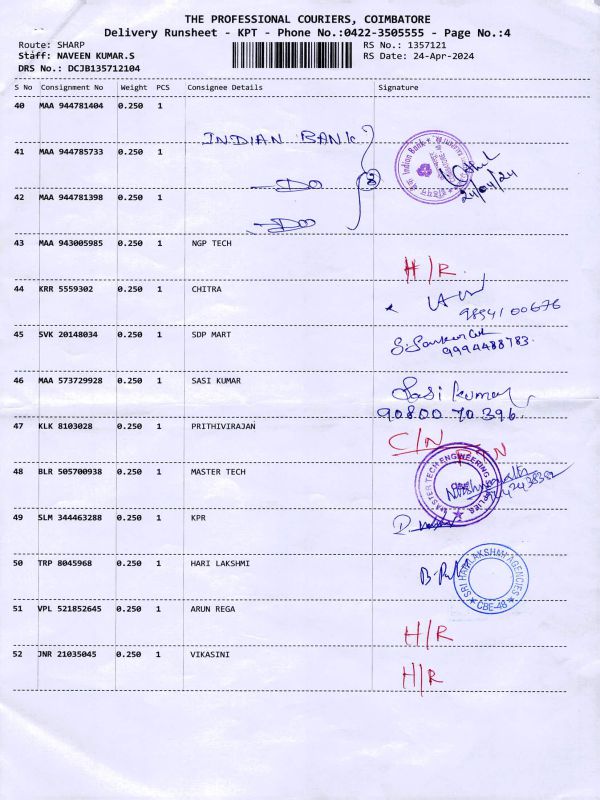 THE PROFESSIONAL COURIERS, COIMBATORE
Delivery Runsheet - KPT - Phone No.:0422-3505555 - Page No.:4
Route: SHARP
Staff: NAVEEN KUMAR.S
DRS No.: DCJB135712104
RS No.: 1357121
RS Date: 24-Apr-2024
S No Consignment No Weight PCS Consignee Details Signature
40 MAA 944781404 0.250 1
INDIAN BANK
41 MAA 944785733 0.250 1
DO
Indian Bank
24/04/24
42 MAA 944781398 0.250 1
DO
43 MAA 943005985 0.250 1 NGP TECH
H/R
44 KRR 5559302 0.250 1 CHITRA
9894100676
45 SVK 20148034 0.250 1 SDP MART
9994488783.
46 MAA 573729928 0.250 1 SASI KUMAR
Sasi kumar
90800 70 396
47 KLK 8103028 0.250 1 PRITHIVIRAJAN
C/N
48 BLR 505700938 0.250 1 MASTER TECH
MASTER TECH ENGINEERING
49 SLM 344463288 0.250 1 KPR
50 TRP 8045968 0.250 1 HARI LAKSHMI
SRI HARI LAKSHMI AGENCIES
CBE-48
51 VPL 521852645 0.250 1 ARUN REGA
H/R
52 JNR 21035045 0.250 1 VIKASINI
H/R